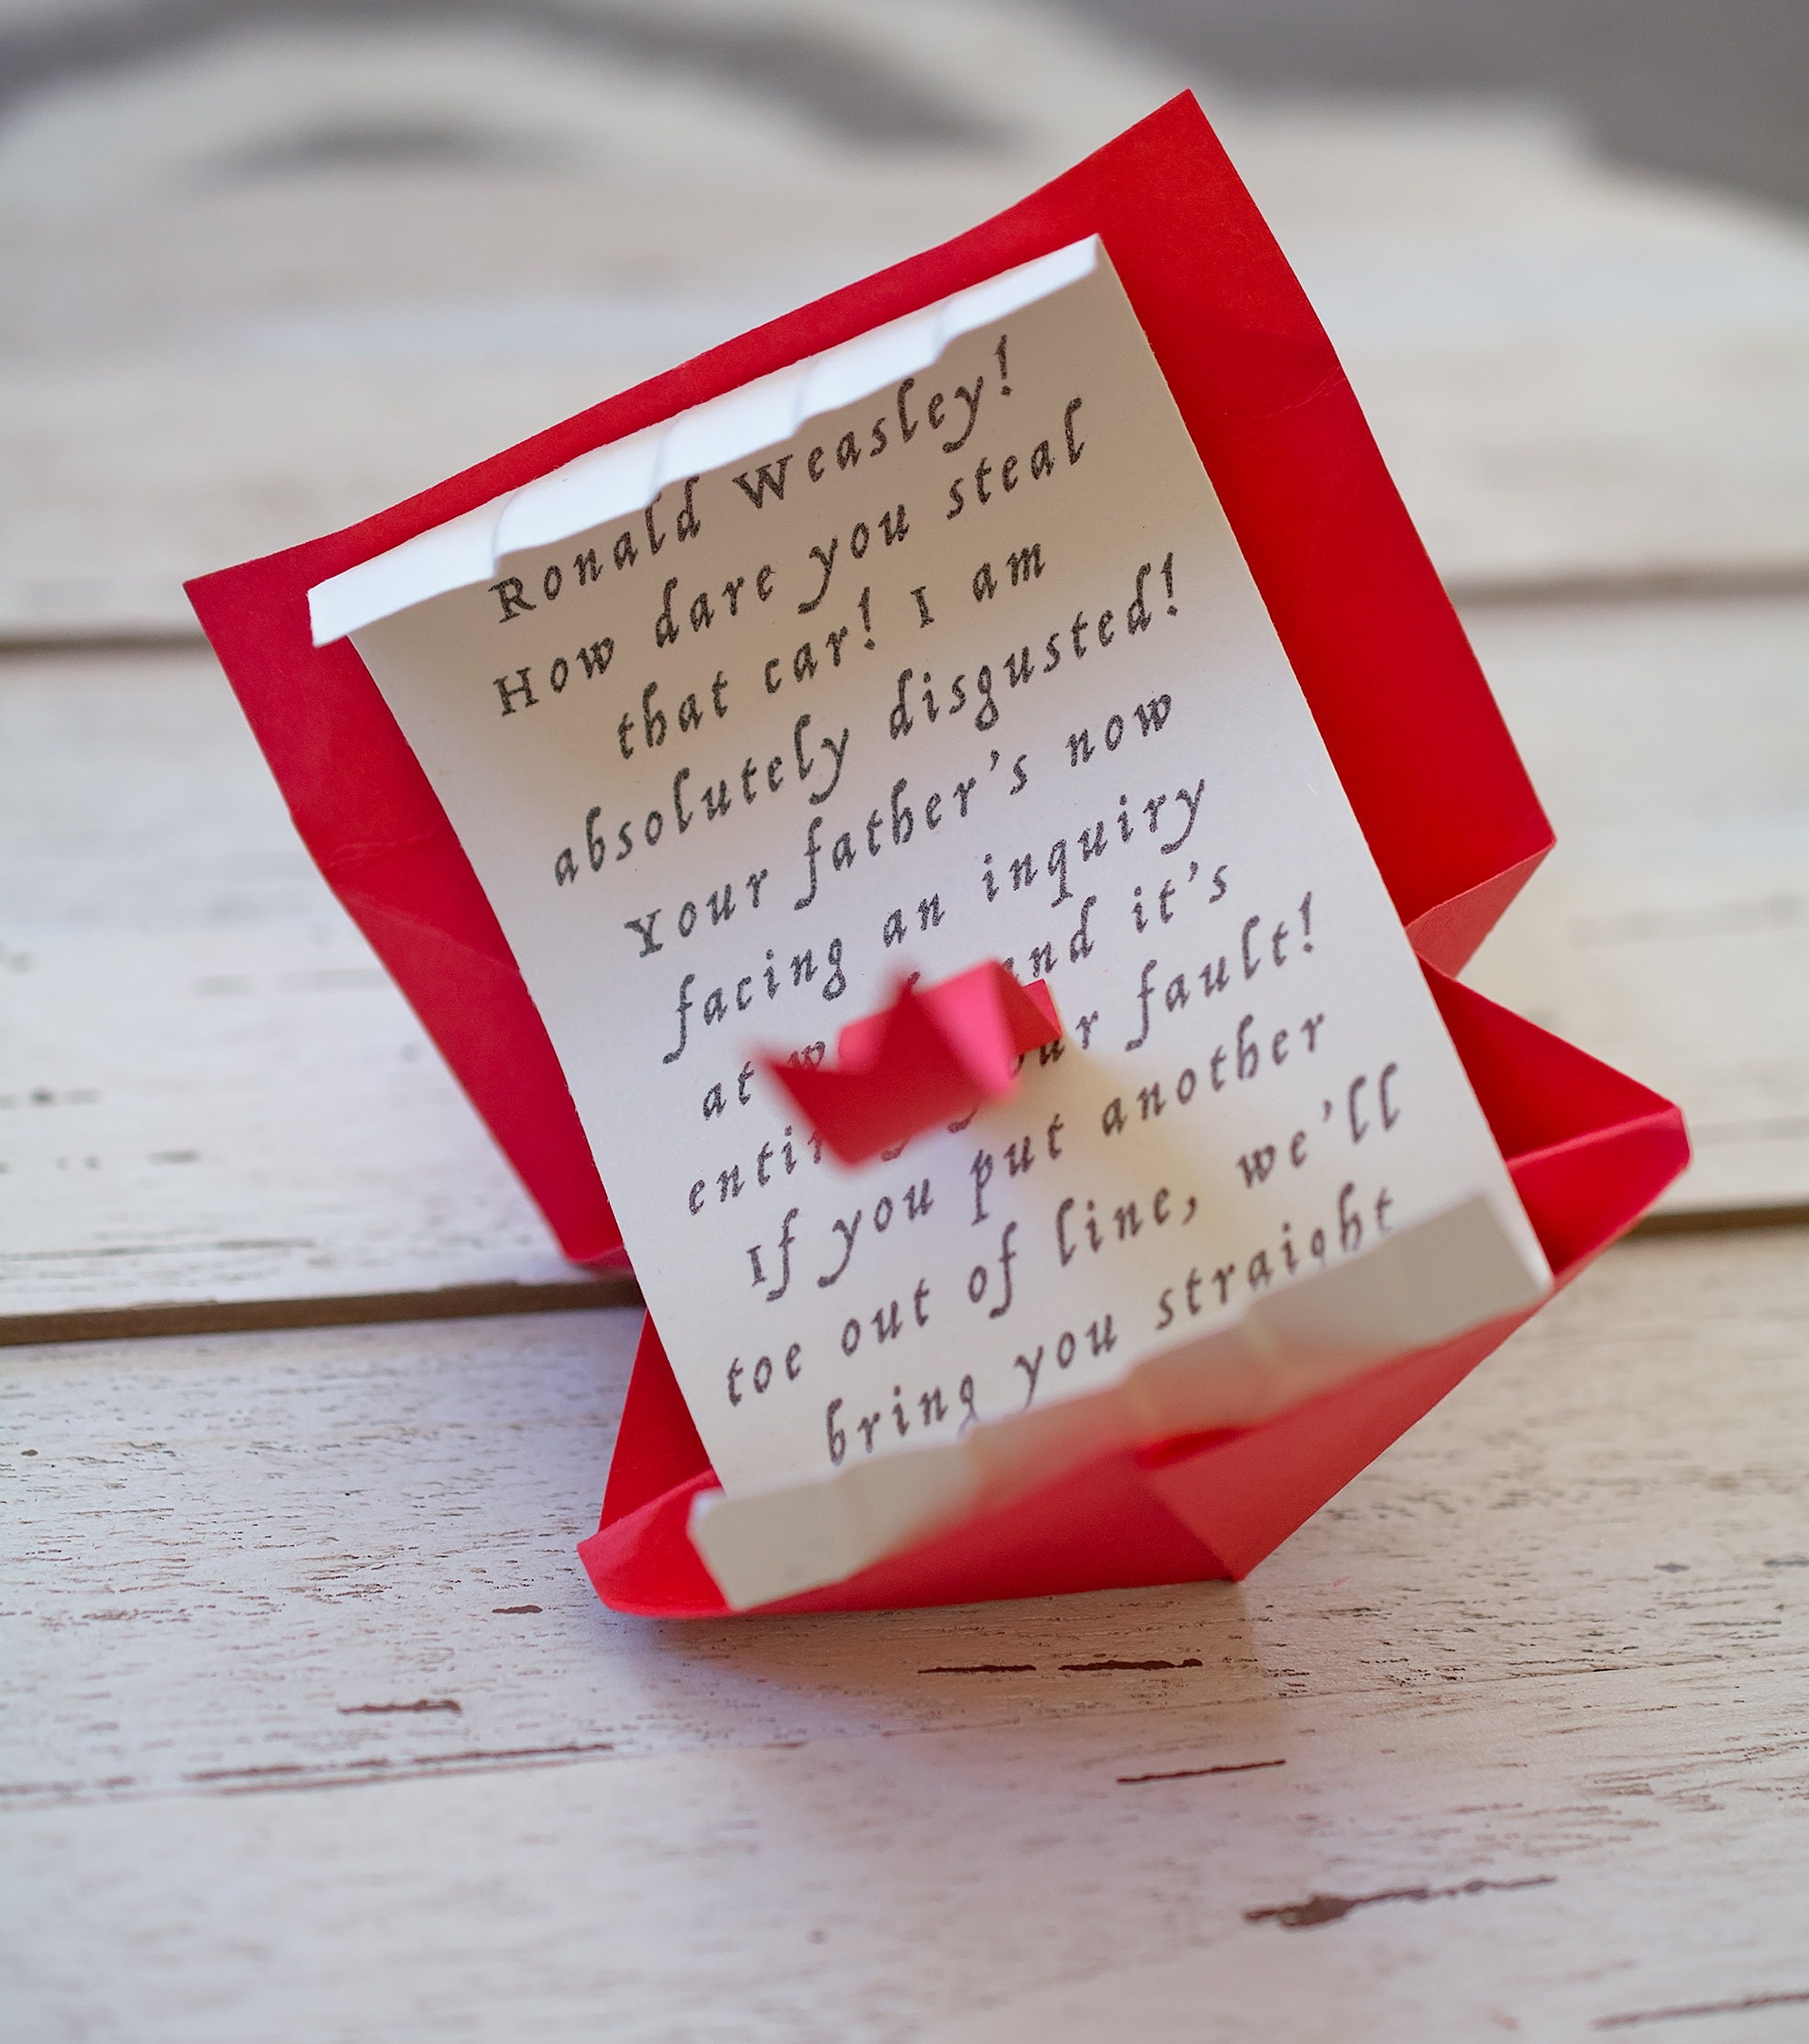 Ronald Weasley!
How dare you steal
that car! I am
absolutely disgusted!
Your father's now
facing an inquiry
at and it's
fault!
If you put another
toe out of line, we'll
bring you straight